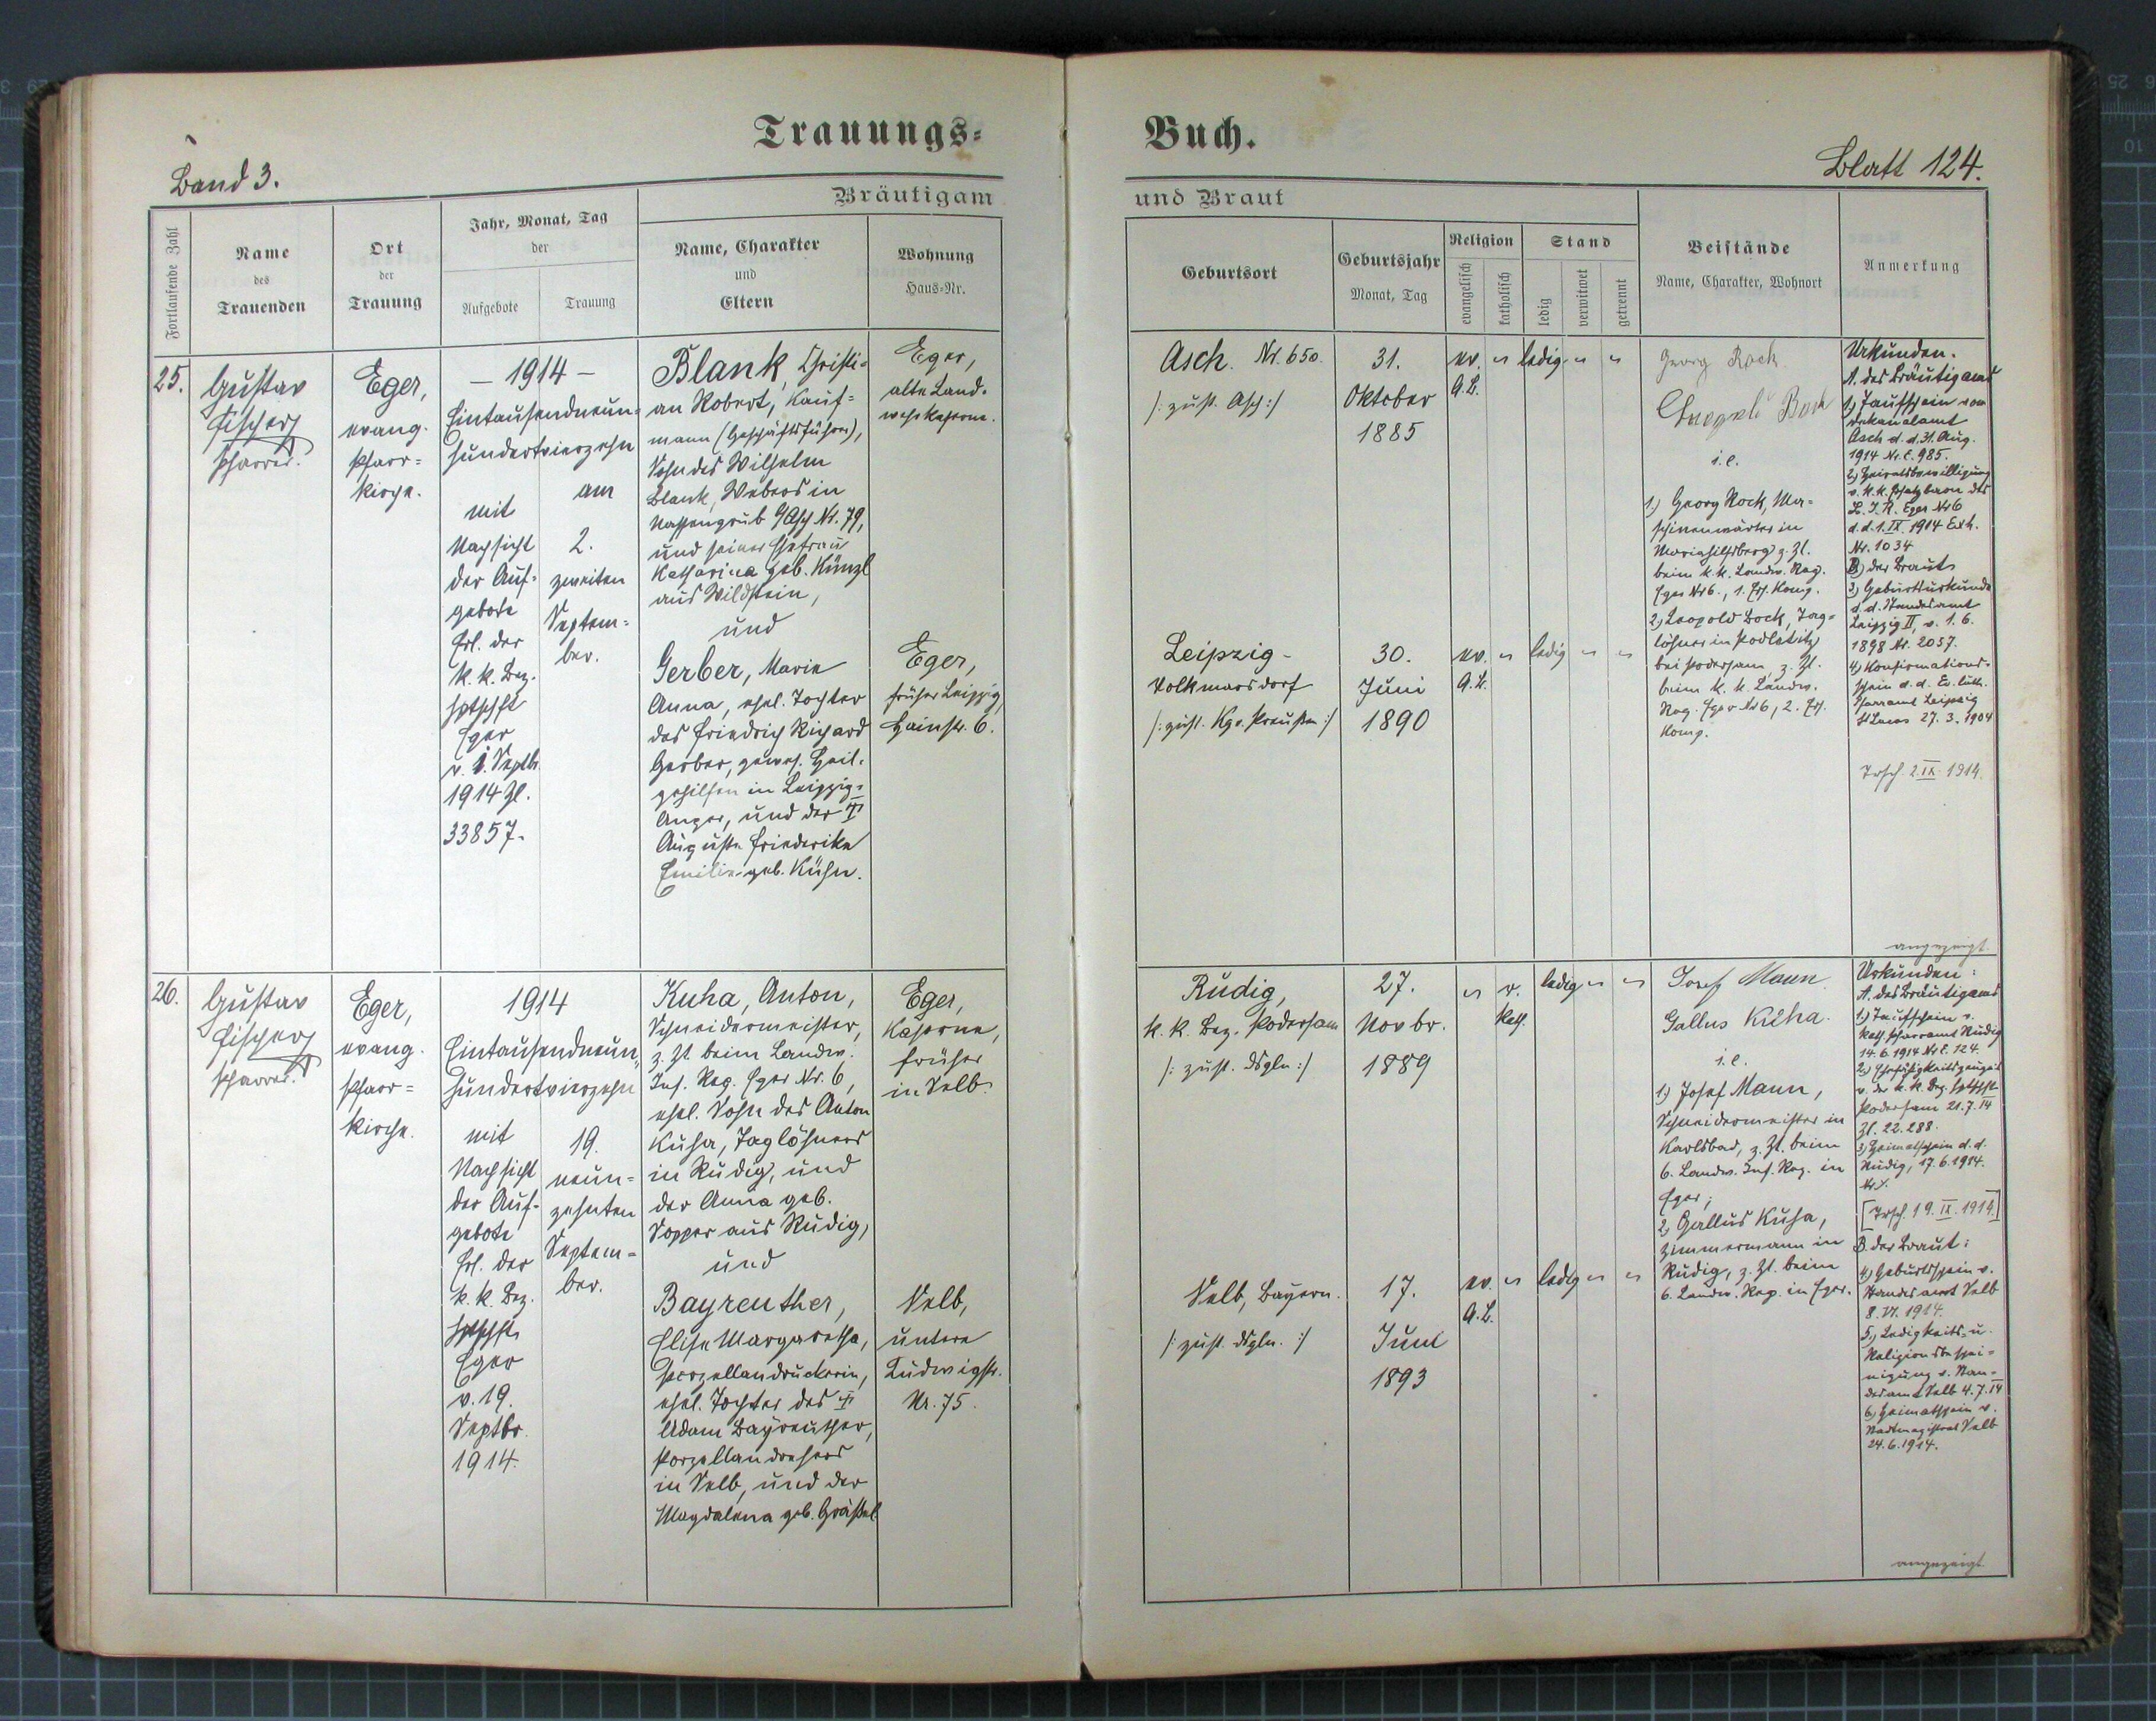 Trauungs=
Buch.
Band 3.
Blatt 124.
Bräutigam
und Braut
Fortlaufende Zahl
Name
des
Trauenden
Ort
der
Trauung
Jahr, Monat, Tag
der
Aufgebote
Trauung
Name, Charakter
und
Eltern
Wohnung
Haus=Nr.
Geburtsort
Geburtsjahr
Monat, Tag
Religion
evangelisch
katholisch
Stand
ledig
verwitwet
getrennt
Beistände
Name, Charakter, Wohnort
Anmerkung
25.
Gustav
Fischer
Pfarrer.
Eger,
evang.
Pfarr=
kirche.
— 1914 —
Eintausendneun=
hundertvierzehn
mit
Nachsicht
der Auf=
gebote
Erl. der
k. k. Bez.
Hptschft
Eger
v. 1. Septb.
1914 Zl.
33857.
am
2.
zweiten
Septem=
ber.
Blank, Christi=
an Robert, Kauf=
mann (Geschäftsführer),
Sohn des Wilhelm
Blank, Webers in
Nassengrub b/Asch Nr. 79,
und seiner Ehefrau
Katharina geb. Künzl
aus Wildstein,
und
Gerber, Marie
Anna, ehel. Tochter
des Friedrich Richard
Gerber, gewes. Heil=
gehilfen in Leipzig=
Anger, und der †
Auguste Friederike
Emilie geb. Kühn.
Eger,
alte Land=
wehrkaserne.
Eger,
früher Leipzig,
Hainstr. 6.
Asch. Nr. 650.
/: zust. Asch :/
31.
Oktober
1885
ev.
A.B.
ledig
Leipzig-
Volkmarsdorf
/: zust. Kgr. Preußen :/
30.
Juni
1890
ev.
A.B.
ledig
Georg Rock
Leopold Bock
i.e.
1) Georg Rock, Ma=
schinenwärter in
Mariahilfsberg z. Zt.
beim k. k. Landw. Reg.
Eger Nr 6., 1. Ers. Komp.
2) Leopold Bock, Tag=
löhner in Podletitz
bei Podersam, z. Zt.
beim k. k. Landw.
Reg. Eger Nr 6, 2. Ers.
Komp.
Urkunden.
A. des Bräutigams
1) Taufschein vom
Dekanalamt
Asch d. d. 31. Aug.
1914 Nr. E. 985.
2) Heiratsbewilligung
L. I. R. Eger Nr 6
d. d. 1. IX. 1914 Exh.
Nr. 1034
B) der Braut
3) Geburtsurkunde
d. d. Standesamt
Leipzig II, v. 1. 6.
1898 Nr. 2057.
4) Konfirmations=
schein d. d. Ev. luth.
Pfarramt Leipzig
St Lucas 27. 3. 1904
Trsch. 2. IX. 1914.
angezeigt.
26.
Gustav
Fischer
Pfarrer.
Eger,
evang.
Pfarr=
kirche.
1914
Eintausendneun=
hundertvierzehn
mit
Nachsicht
der Auf=
gebote
Erl. der
k. k. Bez.
Hptschft
Eger
v. 19.
Septbr.
1914.
19.
neun=
zehnten
Septem=
ber.
Kuha, Anton,
Schneidermeister,
z. Zt. beim Landw.
Inf. Reg. Eger Nr. 6,
ehel. Sohn des Anton
Kuha, Taglöhners
in Rudig, und
der Anna geb.
Sopper aus Rudig,
und
Bayreuther,
Elise Margaretha,
Porzellandruckerin,
ehel. Tochter des †
Adam Bayreuther,
Porzellandrehers
in Selb, und der
Magdalena geb. Gräßel.
Eger,
Kaserne,
früher
in Selb.
Selb,
untere
Ludwigstr.
Nr. 75.
Rudig,
k. k. Bez. Podersam
/: zust. dsgln :/
27.
Novbr.
1889
r.
kath.
ledig
Selb, Bayern.
/: zust. dsgln. :/
17.
Juni
1893
ev.
A.B.
ledig
Josef Mann.
Gallus Kuha.
i.e.
1) Josef Mann,
Schneidermeister in
Karlsbad, z. Zt. beim
6. Landw. Inf. Reg. in
Eger;
2) Gallus Kuha,
Zimmermann in
Rudig, z. Zt. beim
6. Landw. Reg. in Eger.
Urkunden:
A. des Bräutigams
1.) Taufschein v.
kath. Pfarramt Rudig
14. 6. 1914 Nr E. 124.
2.) Ehefähigkeitszeugnis
v. der k. k. Bez. Hptschft
Podersam 21. 7. 14
Zl. 22.288.
3) Heimatschein d. d.
Rudig, 17. 6. 1914.
[Trsch. 19. IX. 1914.]
B. der Braut:
4) Geburtsschein v.
Standesamt Selb
8. VI. 1914.
5.) Ledigkeits= u.
Religionsbeschei=
nigung v. Stan=
desamt Selb 4. 7. 14
6) Heimatschein v.
Stadtmagistrat Selb
24. 6. 1914.
angezeigt.